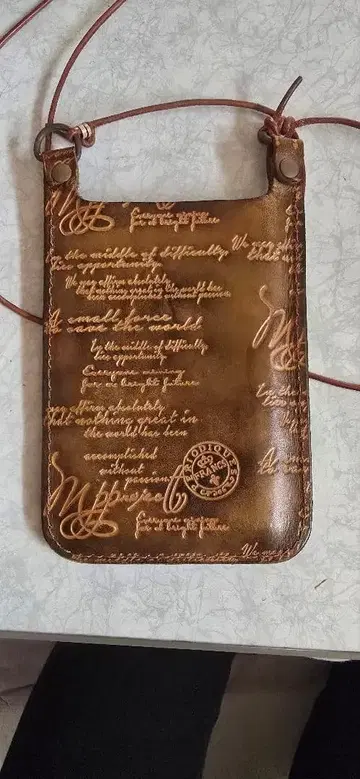 Everyone mining
for a bright future
In the middle of difficulty
lies opportunity
We may affirm absolutely
that nothing great in the world has
been accomplished without passion
A small force
to save the world
In the middle of difficulty
lies opportunity
Everyone mining
for a bright future
may affirm absolutely
that nothing great in
the world has been
accomplished
without
passion
PERIODIQUES
FRANCS
Mpproject
Everyone mining
for a bright future
We may